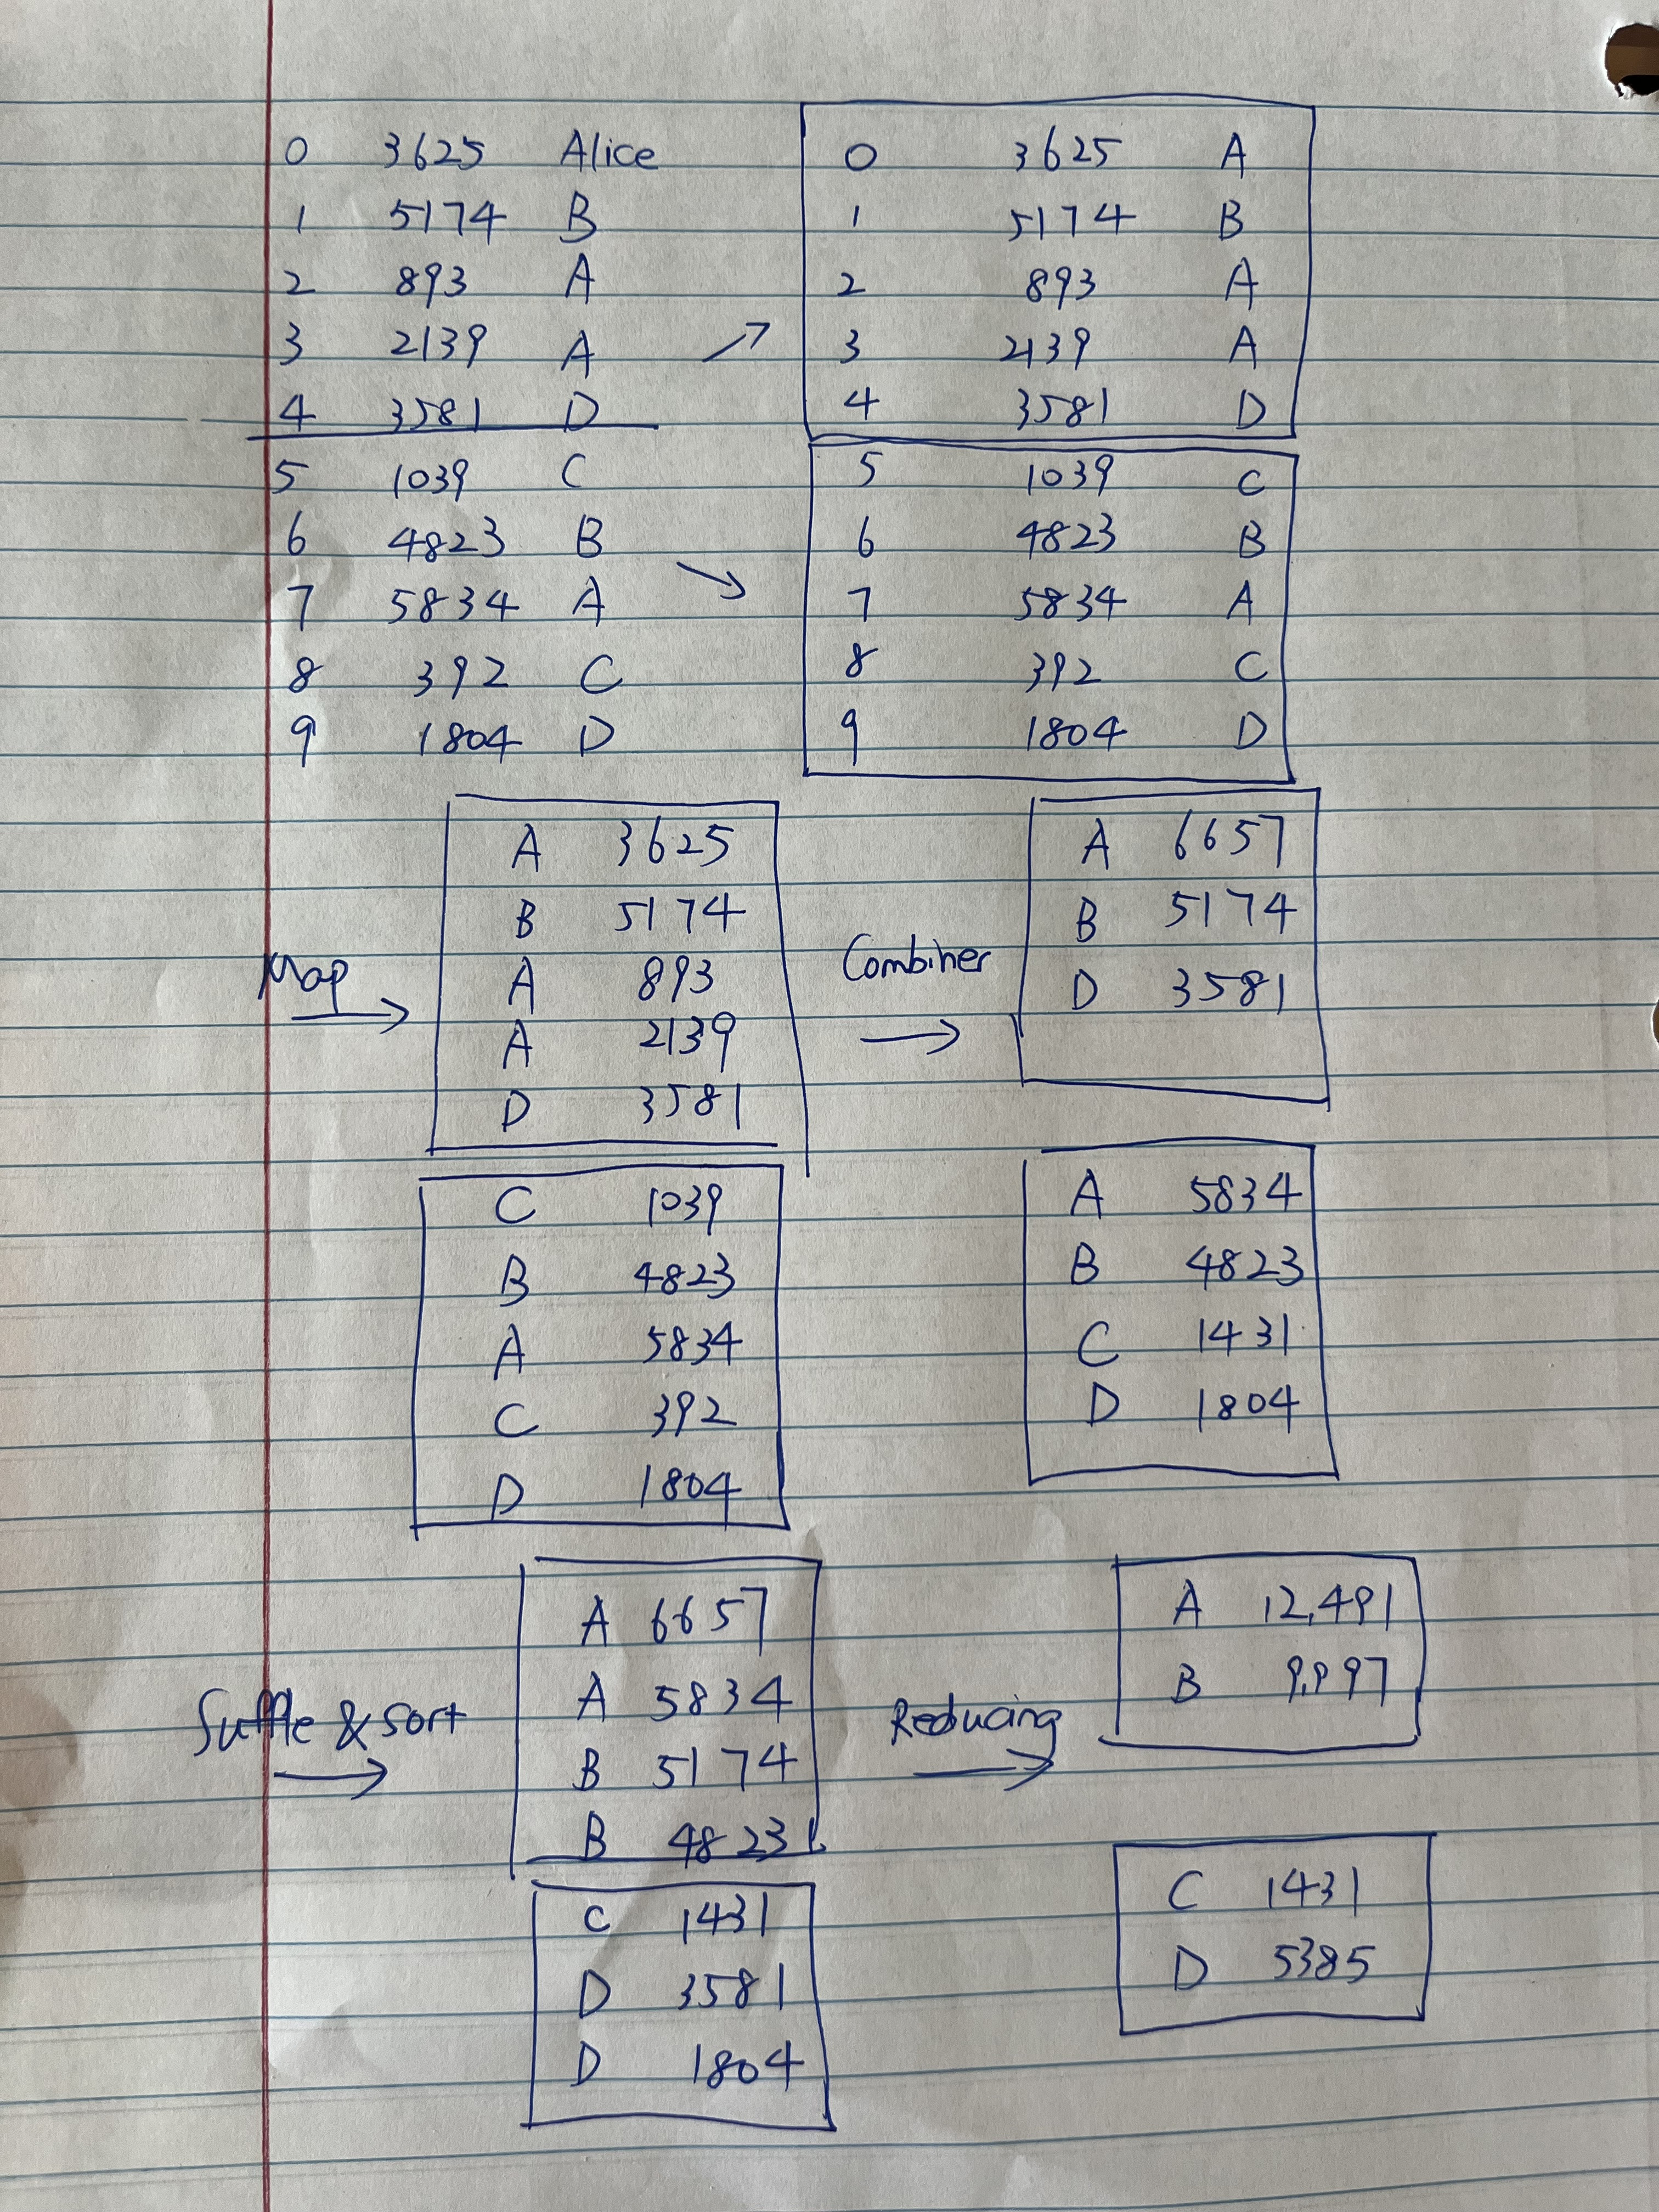 0 3625 Alice
1 5174 B
2 893 A
3 2139 A
4 3581 D
5 1039 C
6 4823 B
7 5834 A
8 392 C
9 1804 D
0 3625 A
1 5174 B
2 893 A
3 2139 A
4 3581 D
5 1039 C
6 4823 B
7 5834 A
8 392 C
9 1804 D
Map
A 3625
B 5174
A 893
A 2139
D 3581
C 1039
B 4823
A 5834
C 392
D 1804
Combiner
A 6657
B 5174
D 3581
A 5834
B 4823
C 1431
D 1804
Suffle & sort
A 6657
A 5834
B 5174
B 4823
C 1431
D 3581
D 1804
Reducing
A 12,491
B 9,997
C 1431
D 5385